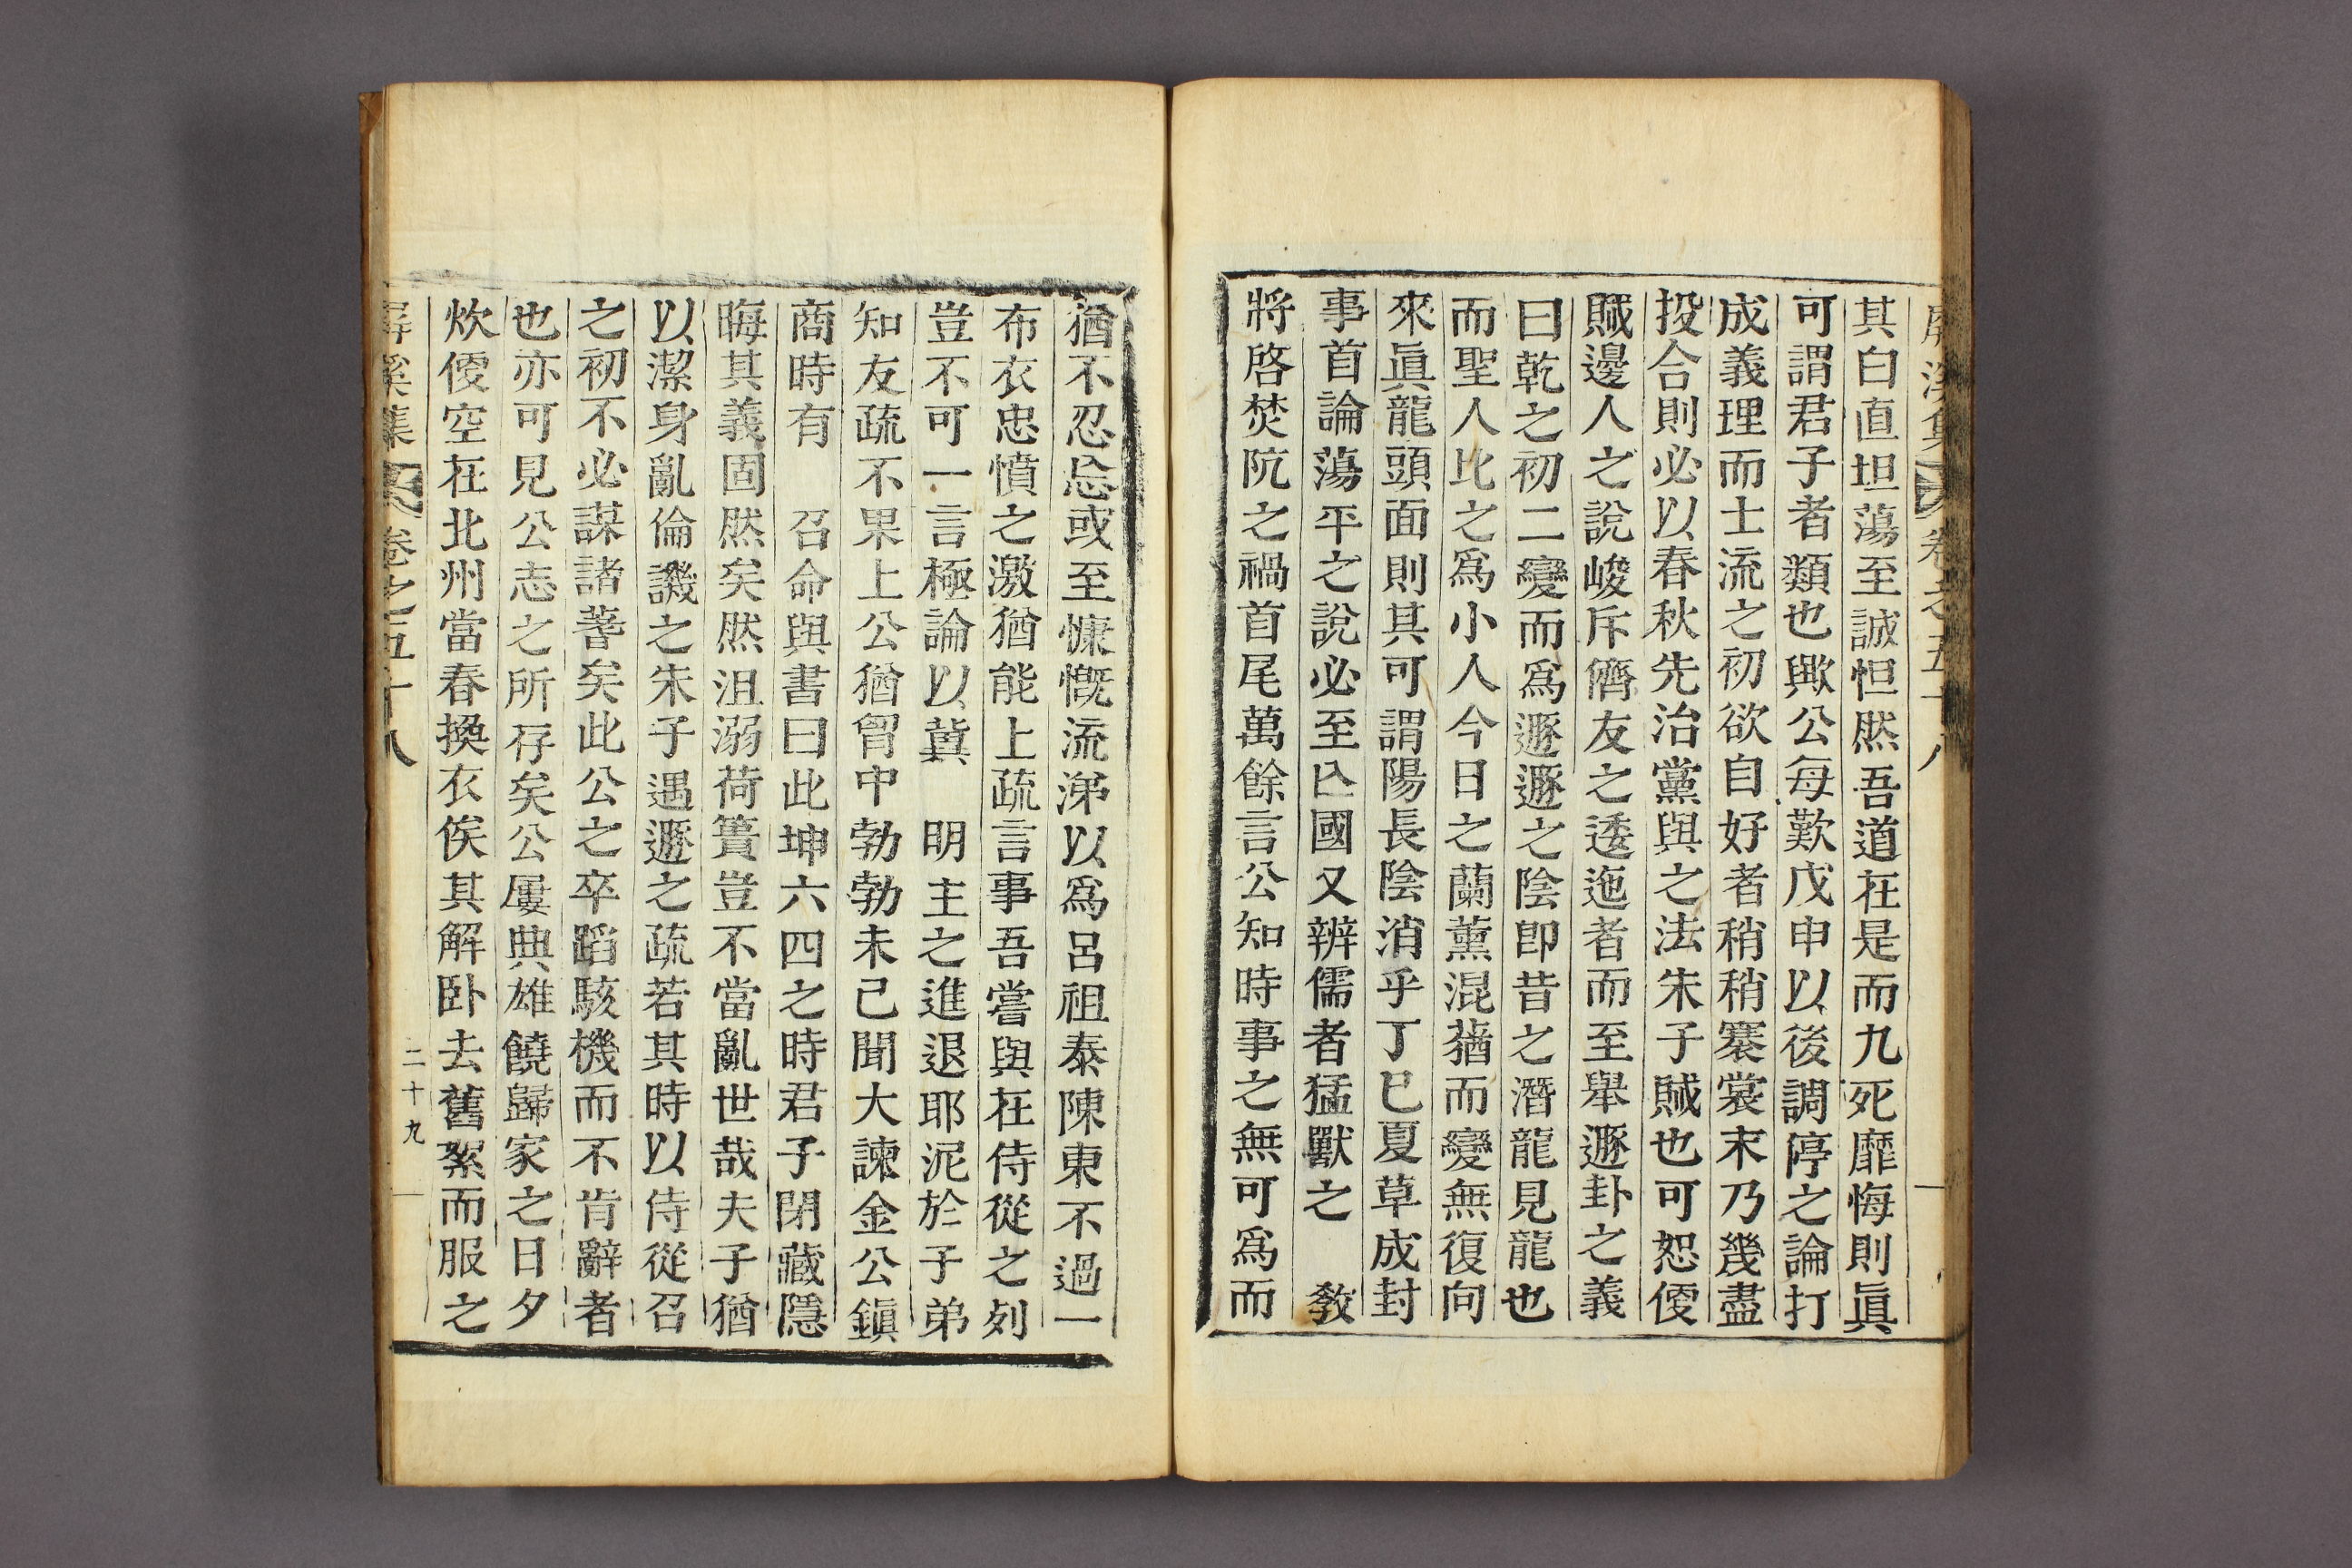 屏溪集 卷之五十八
其白直坦蕩至誠怛然吾道在是而九死靡悔則眞
可謂君子者類也歟公每歎戊申以後調停之論打
成義理而士流之初欲自好者稍稍褰裳末乃幾盡
投合則必以春秋先治黨與之法朱子賊也可恕便
賊邊人之說峻斥儕友之逶迤者而至舉遯卦之義
曰乾之初二變而爲遯遯之陰卽昔之潛龍見龍也
而聖人比之爲小人今日之蘭薰混蕕而變無復向
來眞龍頭面則其可謂陽長陰消乎丁巳夏草成封
事首論蕩平之說必至亾國又辨儒者猛獸之　敎
將啓焚阬之禍首尾萬餘言公知時事之無可爲而
猶不忍忘或至慷慨流涕以爲呂祖泰陳東不過一
布衣忠憤之激猶能上疏言事吾嘗與在侍從之列
豈不可一言極論以冀　明主之進退耶泥於子弟
知友疏不果上公猶胷中勃勃未已聞大諫金公鎭
商時有　召命與書曰此坤六四之時君子閉藏隱
晦其義固然矣然沮溺荷簣豈不當亂世哉夫子猶
以潔身亂倫譏之朱子遇遯之疏若其時以侍從召
之初不必謀諸蓍矣此公之卒蹈駭機而不肯辭者
也亦可見公志之所存矣公屢典雄饒歸家之日夕
炊便空在北州當春換衣俟其解卧去舊絮而服之
屏溪集 卷之五十八 二十九